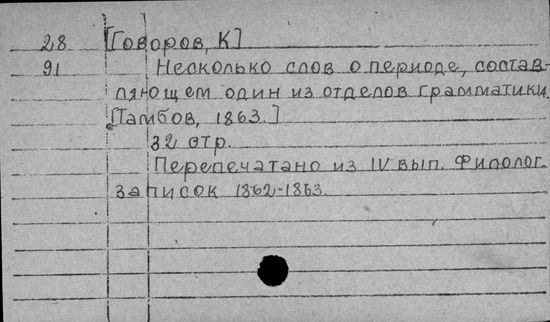 28 [Говоров, К]
91 Несколько слов о периоде, состав-
ляющем один из отделов грамматики
[Тамбов, 1863.]
32 стр.
Перепечатано из IV вып. Филолог.
записок 1862-1863.